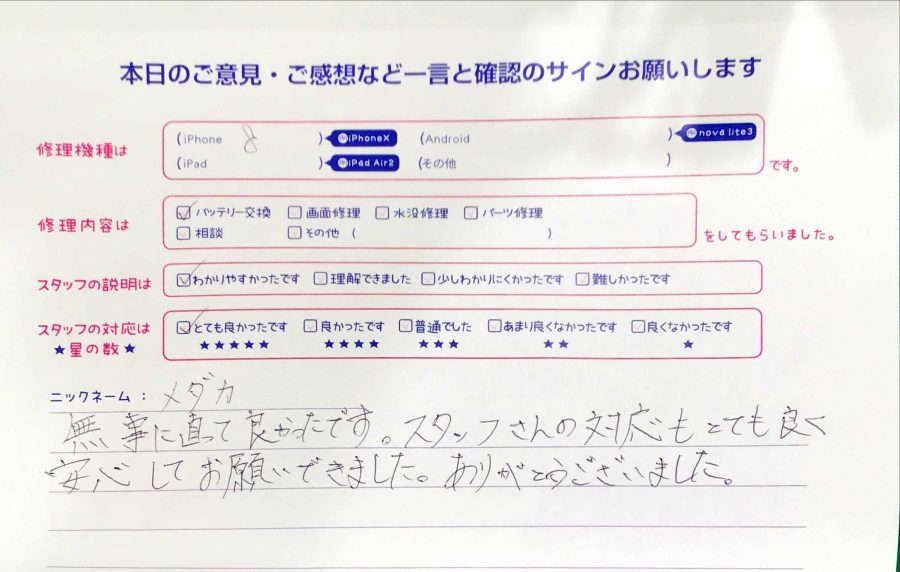 本日のご意見・ご感想など一言と確認のサインお願いします
修理機種は
(iPhone 8 ) iPhoneX (Android ) nova lite3
(iPad ) iPad Air2 (その他 ) です。
修理内容は
バッテリー交換 画面修理 水没修理 パーツ修理
相談 その他 ( ) をしてもらいました。
スタッフの説明は わかりやすかったです 理解できました 少しわかりにくかったです 難しかったです
スタッフの対応は とても良かったです 良かったです 普通でした あまり良くなかったです 良くなかったです
★星の数★ ★★★★★ ★★★★ ★★★ ★★ ★
ニックネーム： メダカ
無事に直って良かったです。スタッフさんの対応もとても良く
安心してお願いできました。ありがとうございました。